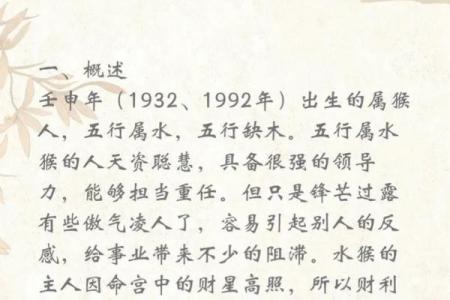 一、概述
壬申年（1932、1992年）出生的属猴
人，五行属水，五行缺木。五行属水
猴的人天资聪慧，具备很强的领导
力，能够担当重任。但只是锋芒过露
有些傲气凌人了，容易引起别人的反
感，给事业带来不少的阻滞。水猴的
主人因命宫中的财星高照，所以财利